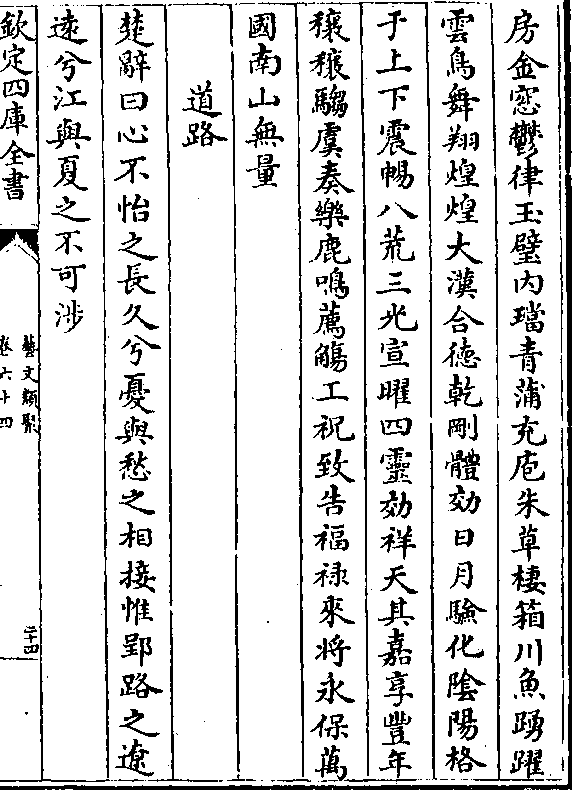 房金窓鬱律玉璧内璫青蒲充庖朱草棲箱川魚踴躍
雲鳥舞翔煌煌大漢合徳乾剛體効日月驗化陰陽格
于上下震暢八荒三光宣曜四靈効祥天其嘉享豐年
穰穰騶虞奏樂鹿鳴薦觴工祝致告福禄來將永保萬
國南山無量
道路
楚辭曰心不怡之長久兮憂與愁之相接惟郢路之遼
逺兮江與夏之不可涉
欽定四庫全書
藝文類聚
卷六十四
二十四